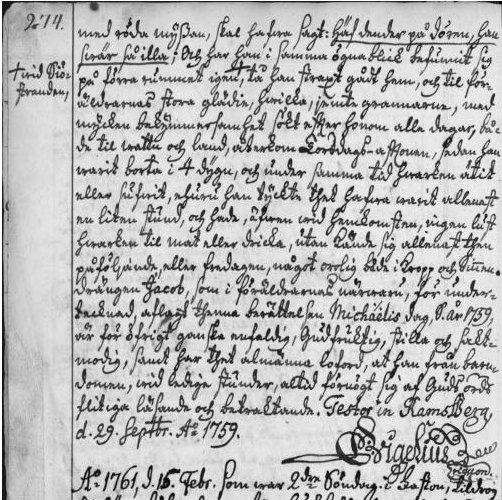 274.
med röda myßan, skal hafva sagt: Haf dender på dören, han
swär så illa; Och har han i samma ögnablick befunnit sig
† wid Siö-
stranden,
på förra rummet igen, † tå han straxt gådt hem, och til för-
äldrarnas stora glädie, hwilka, jemte grannarne, med
mycken bekymmersamhet sökt efter honom alla dagar, bå-
de til wattn och land, återkom Lördags aftonen, sedan han
warit borta i 4 dygn, och under samma tid hwarken ätit
eller sufwit, ehuru han tyckte thet hafwa warit allenast
en liten stund, och hade, äfwen wid hemkomsten, ingen lust
hwarken til mat eller dricka, utan kände sig allenast then
påföljande, eller fredagen, något orolig både i Kropp och Sinne.
Drängen Jacob, som i föräldrarnas närwaru, för under-
tecknad, aflagt thenna berättelsen Michaëlis dag, S. år 1759,
är för öfrigt ganska enfaldig, Gudfruktig, stilla och sakt-
modig, samt har thet almänna loford, at han från barn-
domen, wid ledige stunder, altid förnögt sig af Guds ords
flitiga läsande och betraktande. Testor in Ramsberg
d. 29. Septbr. Ao 1759.
Ao 1761, d. 15. Febr. som war 2dra Söndag. i Faston,